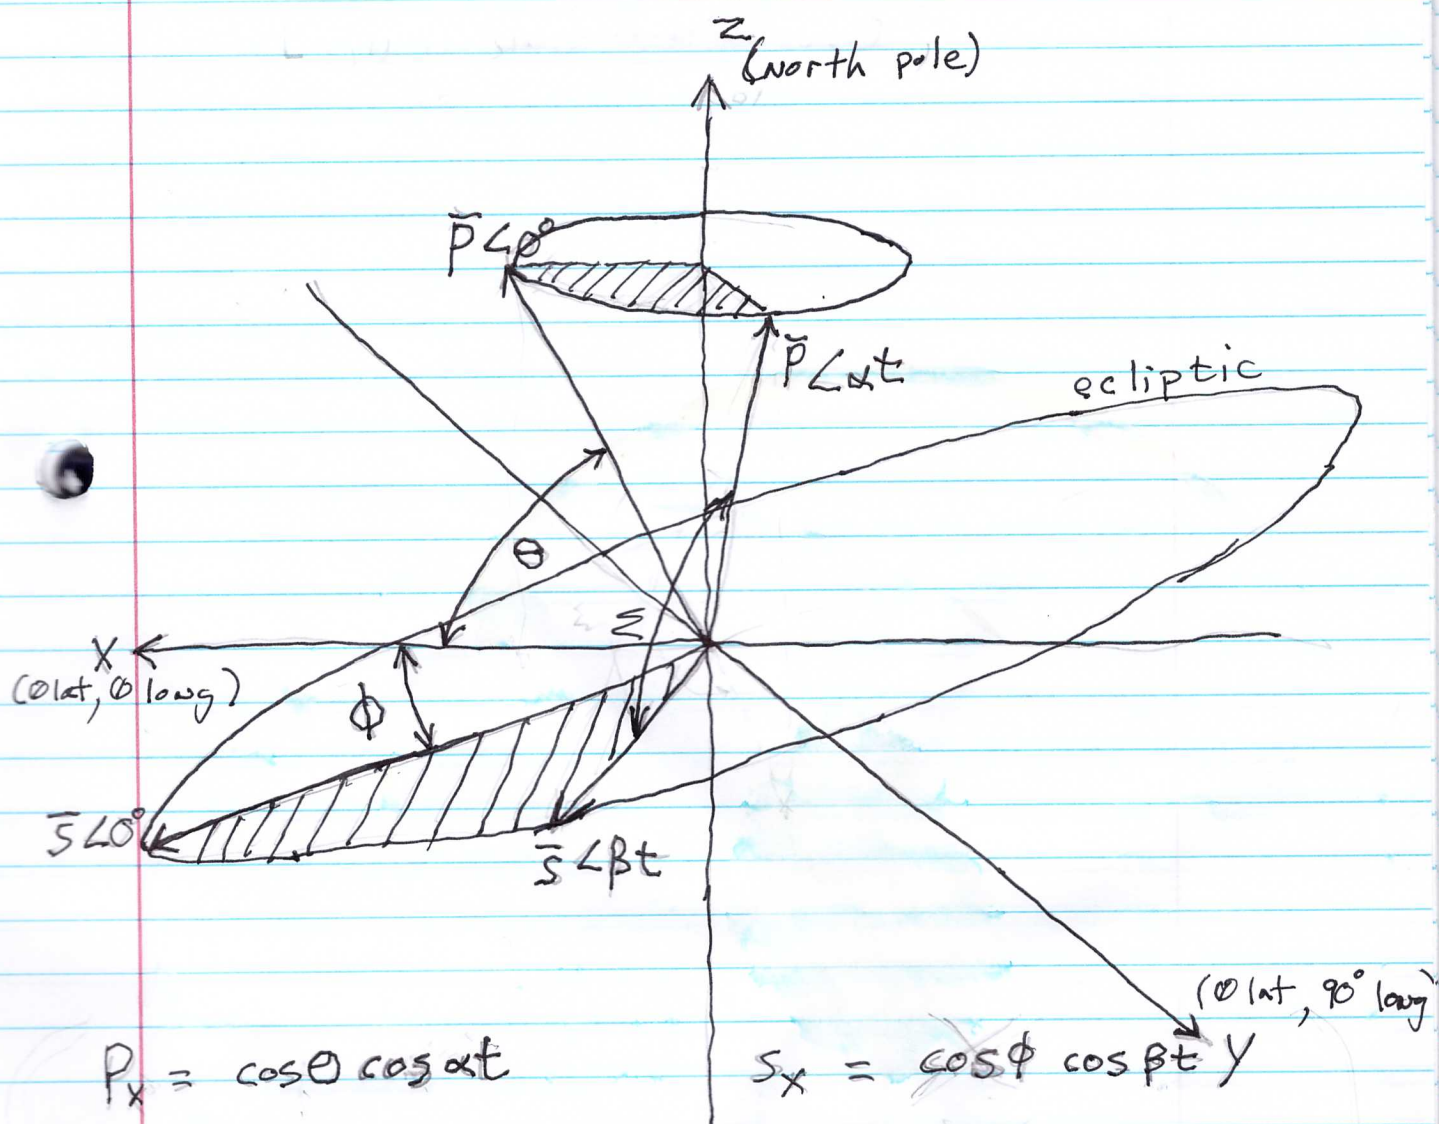 Z
(North pole)
P̄∠0°
P̄∠αt
ecliptic
θ
Σ
X
(0 lat, 0 long)
ϕ
S̄∠0°
S̄∠βt
(0 lat, 90° long)
Y
Pₓ = cosθ cosαt
Sₓ = cosϕ cosβt